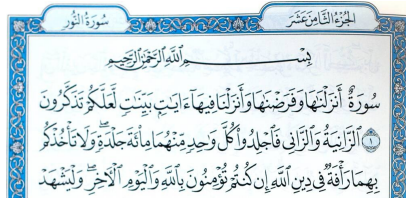 الجزء الثامن عشر
سورة النور
بِسْمِ اللَّهِ الرَّحْمَٰنِ الرَّحِيمِ
سُورَةٌ أَنزَلْنَٰهَا وَفَرَضْنَٰهَا وَأَنزَلْنَا فِيهَآ ءَايَٰتٍۭ بَيِّنَٰتٍ لَّعَلَّكُمْ تَذَكَّرُونَ
١ ٱلزَّانِيَةُ وَٱلزَّانِى فَٱجْلِدُوا۟ كُلَّ وَٰحِدٍ مِّنْهُمَا مِا۟ئَةَ جَلْدَةٍ ۖ وَلَا تَأْخُذْكُم
بِهِمَا رَأْفَةٌ فِى دِينِ ٱللَّهِ إِن كُنتُمْ تُؤْمِنُونَ بِٱللَّهِ وَٱلْيَوْمِ ٱلْءَاخِرِ ۖ وَلْيَشْهَدْ